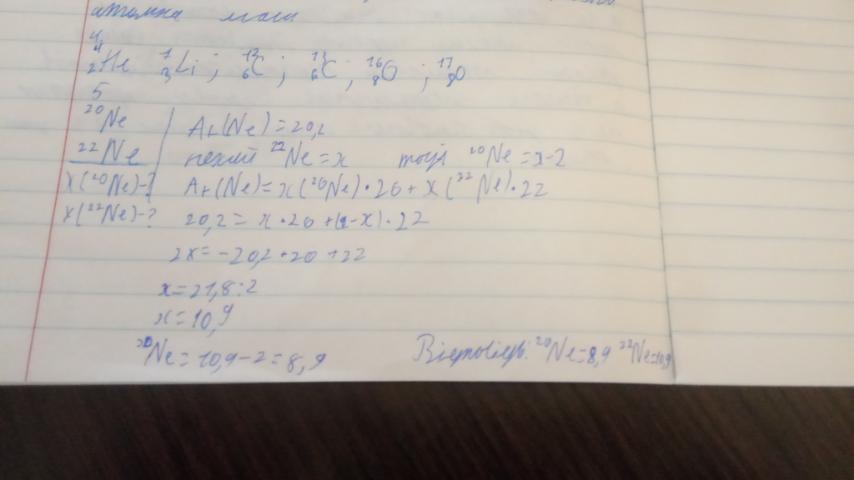 атомна маса
4
⁴₂He ⁷₃Li ; ¹²₆C ; ¹³₆C ; ¹⁶₈O ; ¹⁷₈O
5
²⁰Ne | Ar(Ne)=20,2
²²Ne | нехай ²²Ne=x тоді ²⁰Ne=x-2
x(²⁰Ne)-? | Ar(Ne)=x(²⁰Ne)•20+x(²²Ne)•22
x(²²Ne)-? | 20,2=x•20+(2-x)•22
2x=-20,2+20+22
x=21,8:2
x=10,9
²⁰Ne=10,9-2=8,9 Відповідь: ²⁰Ne=8,9 ²²Ne=10,9